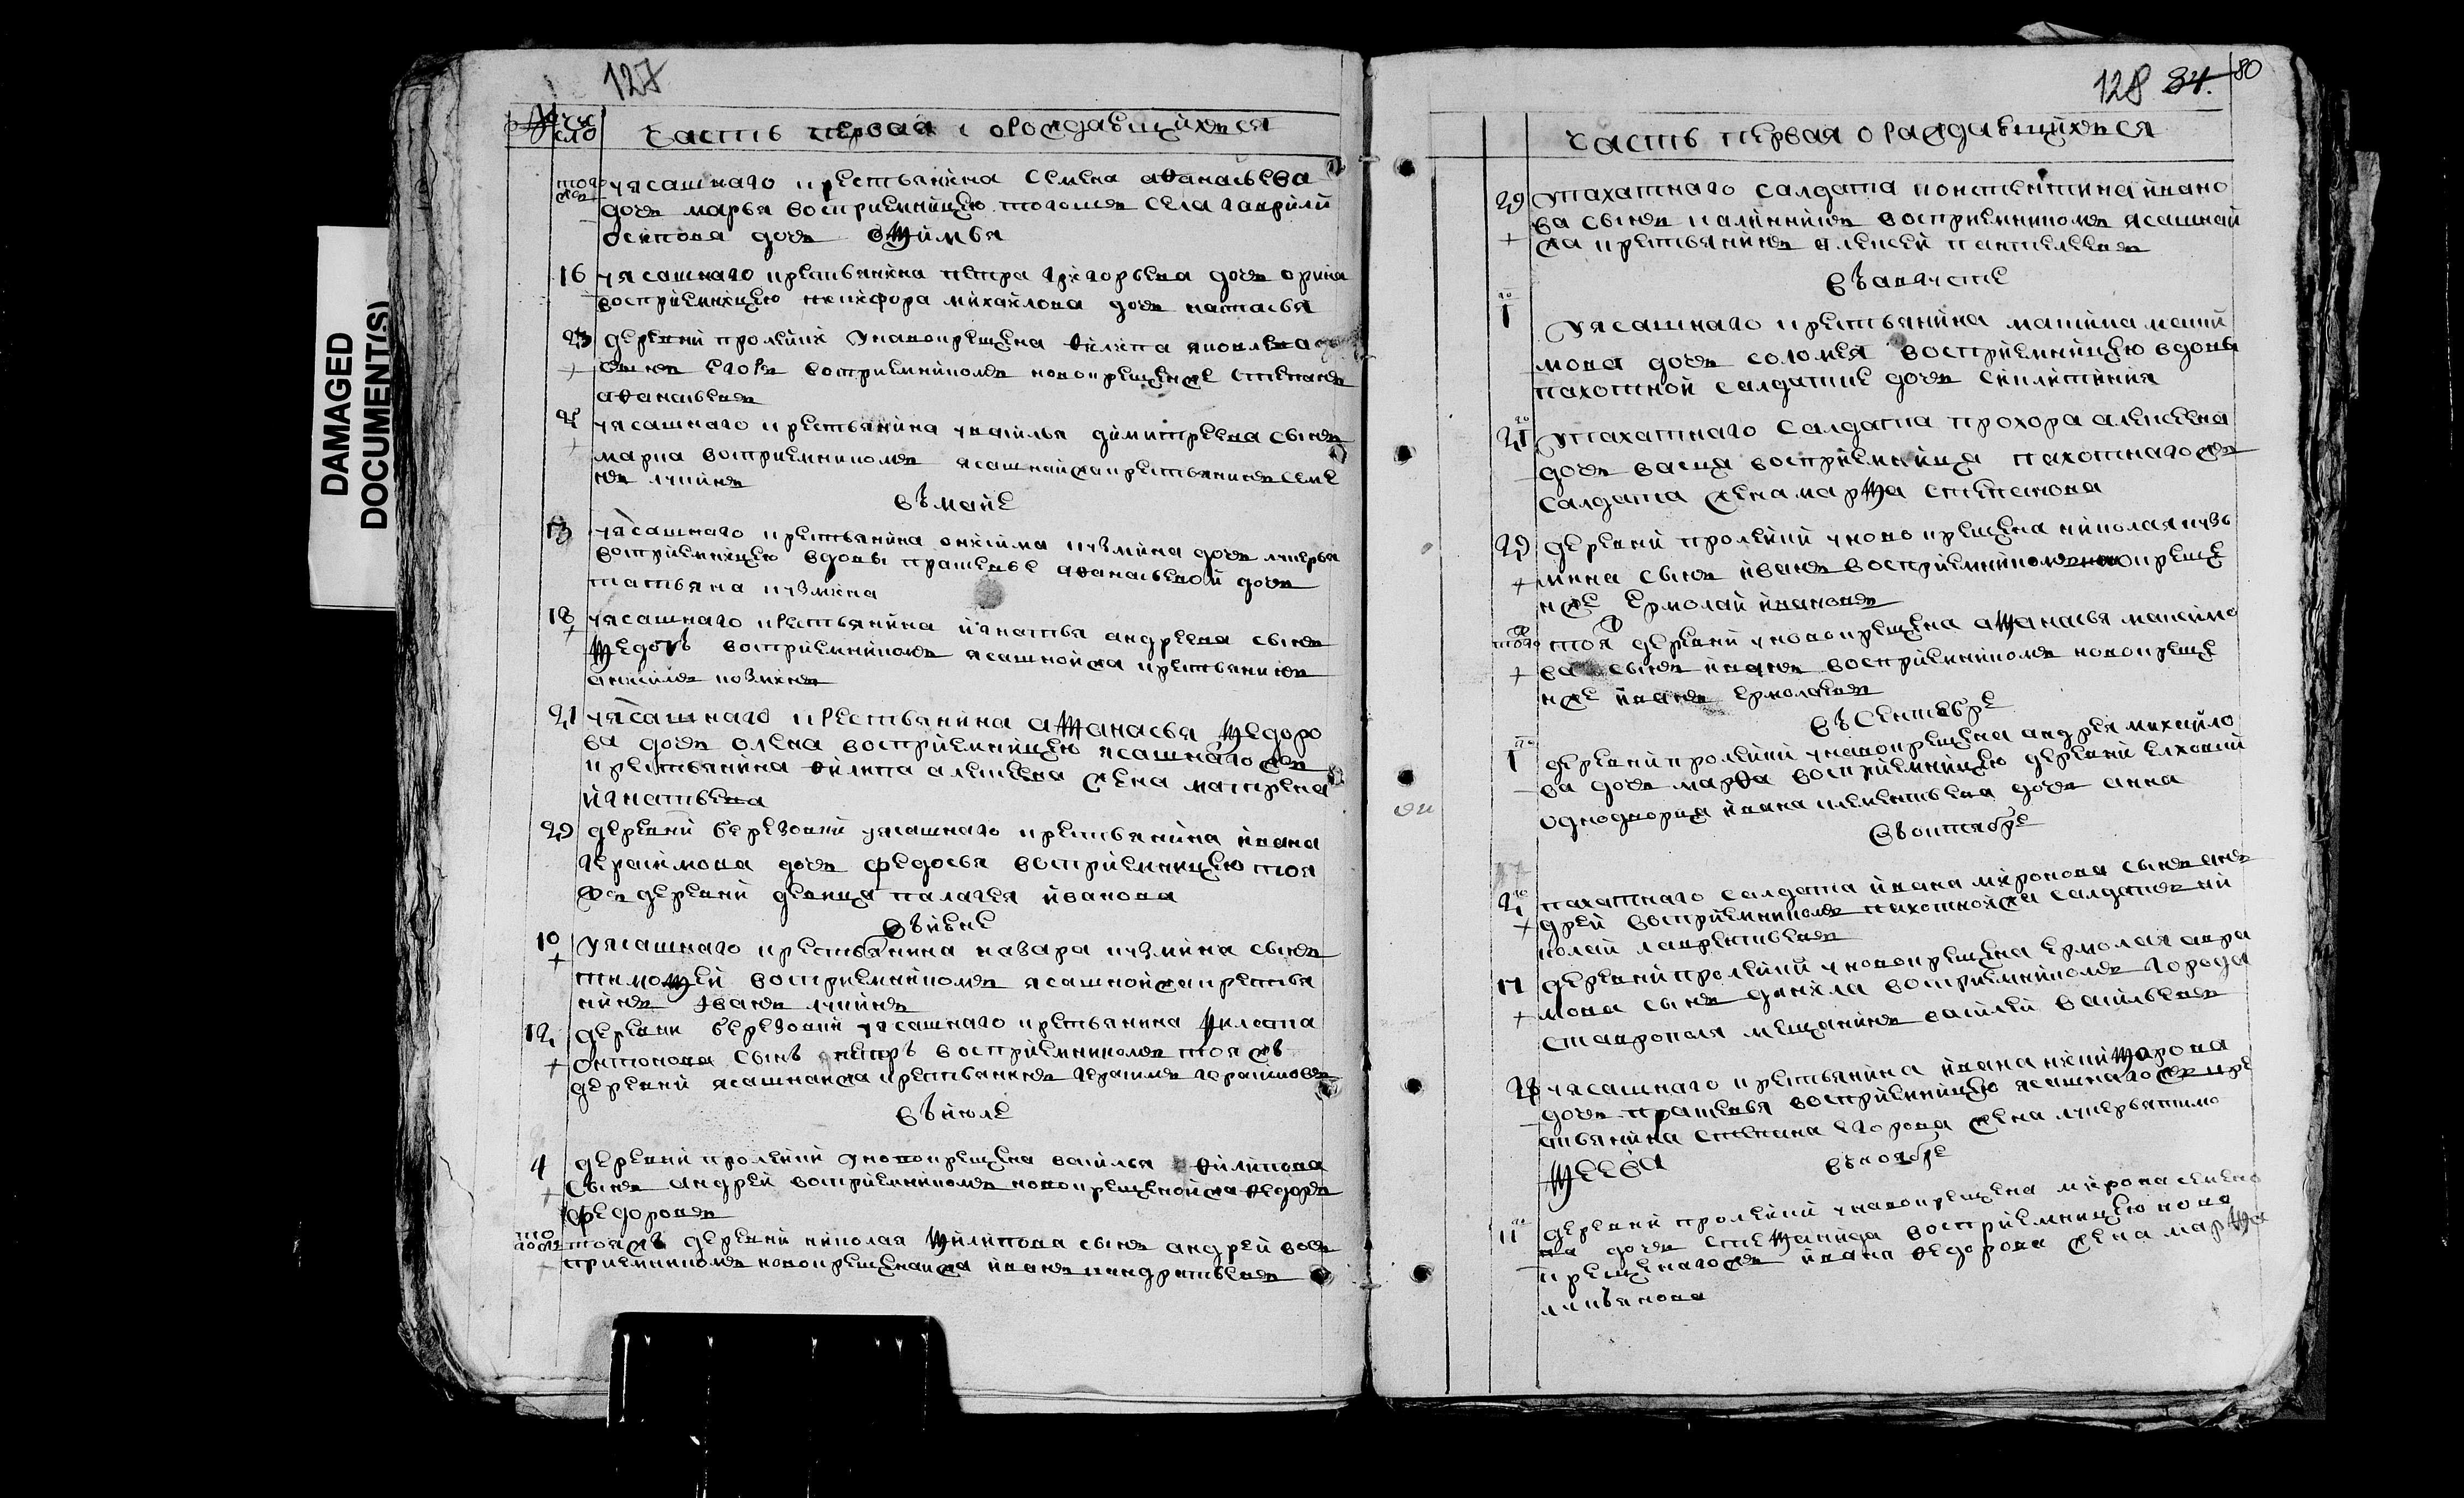 DAMAGED
DOCUMENT(S)
127
число
часть первая о рождающихся
того ж уясашнаго крестьянина семена афанасьева
дочь марья восприемницею тогоже села гаврили
осипова дочь офимья
16 уясашнаго крестьянина петра григорьева дочь орина
восприемницею никифора михаилова дочь настасья
23 деревни промкини уновокрещена филипа яковлева
сынъ егоръ восприемникомъ новокрещенже степанъ
афанасьевъ
уясашнаго крестьянина увасилья димитреева сынъ
марка восприемникомъ ясашнайжа крестьянинъ семе
нъ
въ маие
13 уясашнаго крестьянина онисима кузмина дочь лукерья
восприемницею вдовы прасковье афанасьевой дочь
татьяна кузмина
18 уясашнаго крестьянина игнатья андреева сынъ
федотъ восприемникомъ ясашнойжа крестьянинъ
анисимъ козминъ
21 уясашнаго крестьянина афанасья федоро
ва дочь олена восприемницею ясашнагожъ
крестьянина филипа алексеева жена матрена
игнатьева
29 деревни березовки уясашнаго крестьянина ивана
герасимова дочь федосья восприемницею тоя
жъ деревни девица палагея иванова
въ июне
10 уясашнаго крестьянина назара кузмина сынъ
тимофей восприемникомъ ясашнойжа крестья
нинъ иванъ
12 деревни березовки уясашнаго крестьянина филата
онтонова сынъ петръ восприемникомъ тояжъ
деревни ясашнайжа крестьянинъ герасимъ герасимовъ
въ июле
4 деревни промкини уновокрещена василья филипова
сынъ андрей восприемникомъ новокрещенойжа федоръ
федоровъ
того ж тояжъ деревни николая филипова сынъ андрей вос
приемникомъ новокрещенайжа иванъ кондратьевъ
128 84. 80
часть первая о раждающихся
29 упахатнаго салдата константина ивано
ва сынъ калинникъ восприемникомъ ясашнай
жа крестьянинъ алексей пантелеевъ
въ августе
1 уясашнаго крестьянина максима макси
мова дочь соломея восприемницею вдовы
пахотной салдатки дочь
21 упахатнаго салдата прохора алексеева
дочь васца восприемница пахотнагожъ
салдата жена марфа степанова
29 деревни промкини уново крещена николая кузь
мина сынъ иванъ восприемникомъ новокреще
нже ермолай ивановъ
того ж тоя деревни уновокрещена афанасья максимо
ва сынъ иванъ восприемникомъ новокреще
нже иванъ ермолаевъ
въ сентебре
1 деревни промкини уновокрещена андрея михаило
ва дочь марфа восприемницею деревни елховки
однодворца ивана клементьева дочь анна
въ октябре
2 пахатнаго салдата ивана миронова сынъ анъ
дрей восприемникомъ пахотнойжа салдатъ ни
колай лаврентьевъ
17 деревни промкини уновокрещена ермолая авра
мова сынъ данила восприемникомъ города
ставрополя мещанинъ василей васильевъ
уясашнаго крестьянина ивана никифорова
дочь прасковья восприемницею ясашнагожъ кре
стьянина степана егорова жена лукерья тимо
феева
въ ноябре
11 деревни промкини уновокрещена мирона семено
ва дочь степанида восприемницею ново
крещенагожъ ивана федорова жена марфа
лукьянова